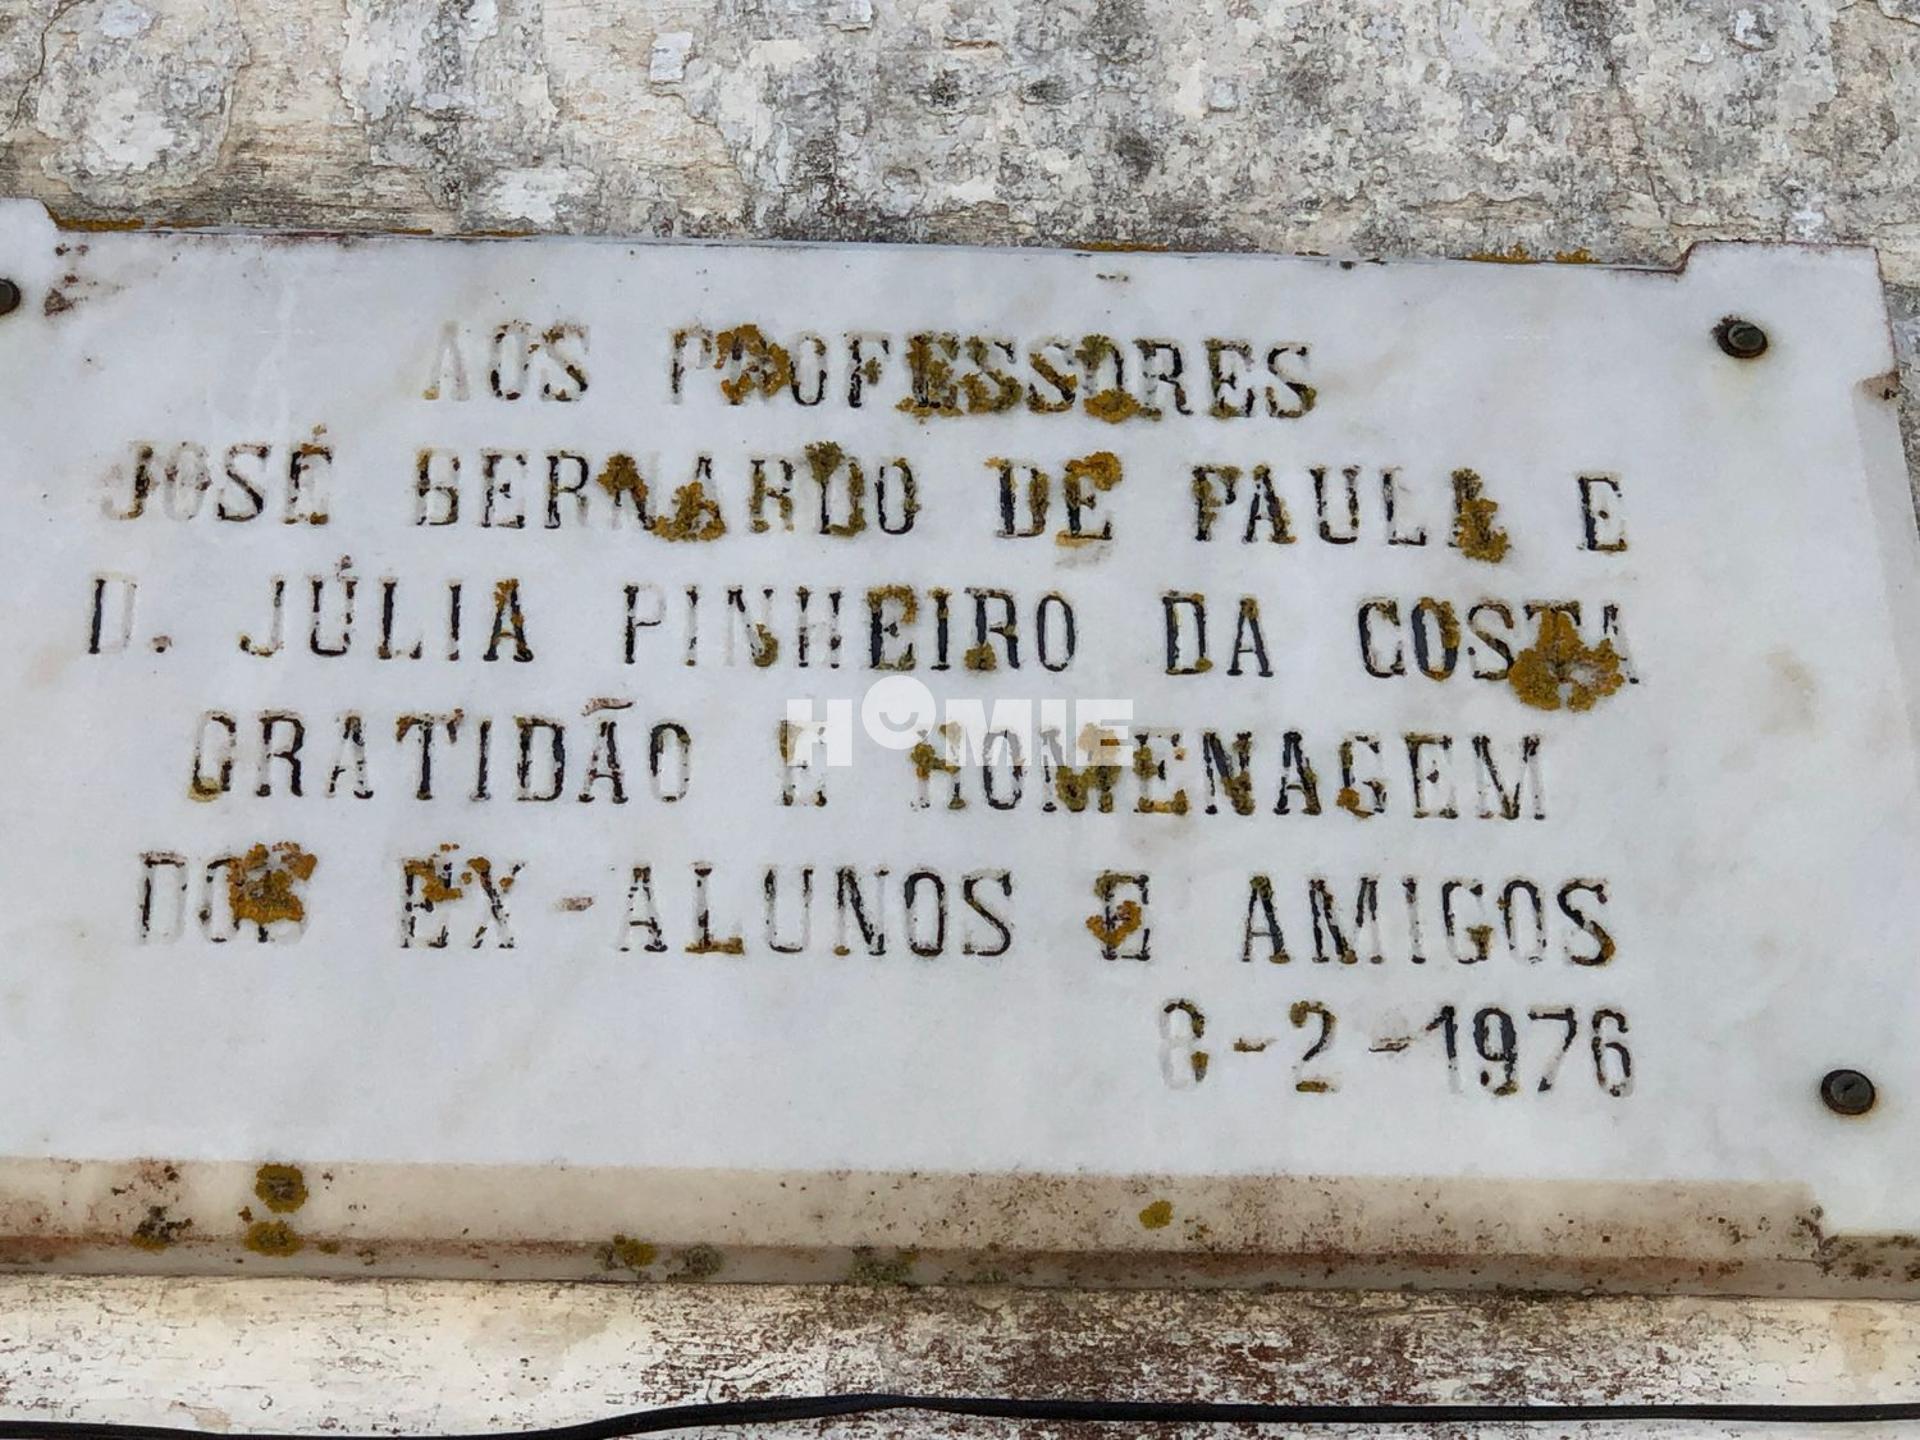 AOS PROFESSORES
JOSÉ BERNARDO DE PAULA E
D. JÚLIA PINHEIRO DA COSTA
HOMIE
GRATIDÃO E HOMENAGEM
DOS EX-ALUNOS E AMIGOS
8-2-1976